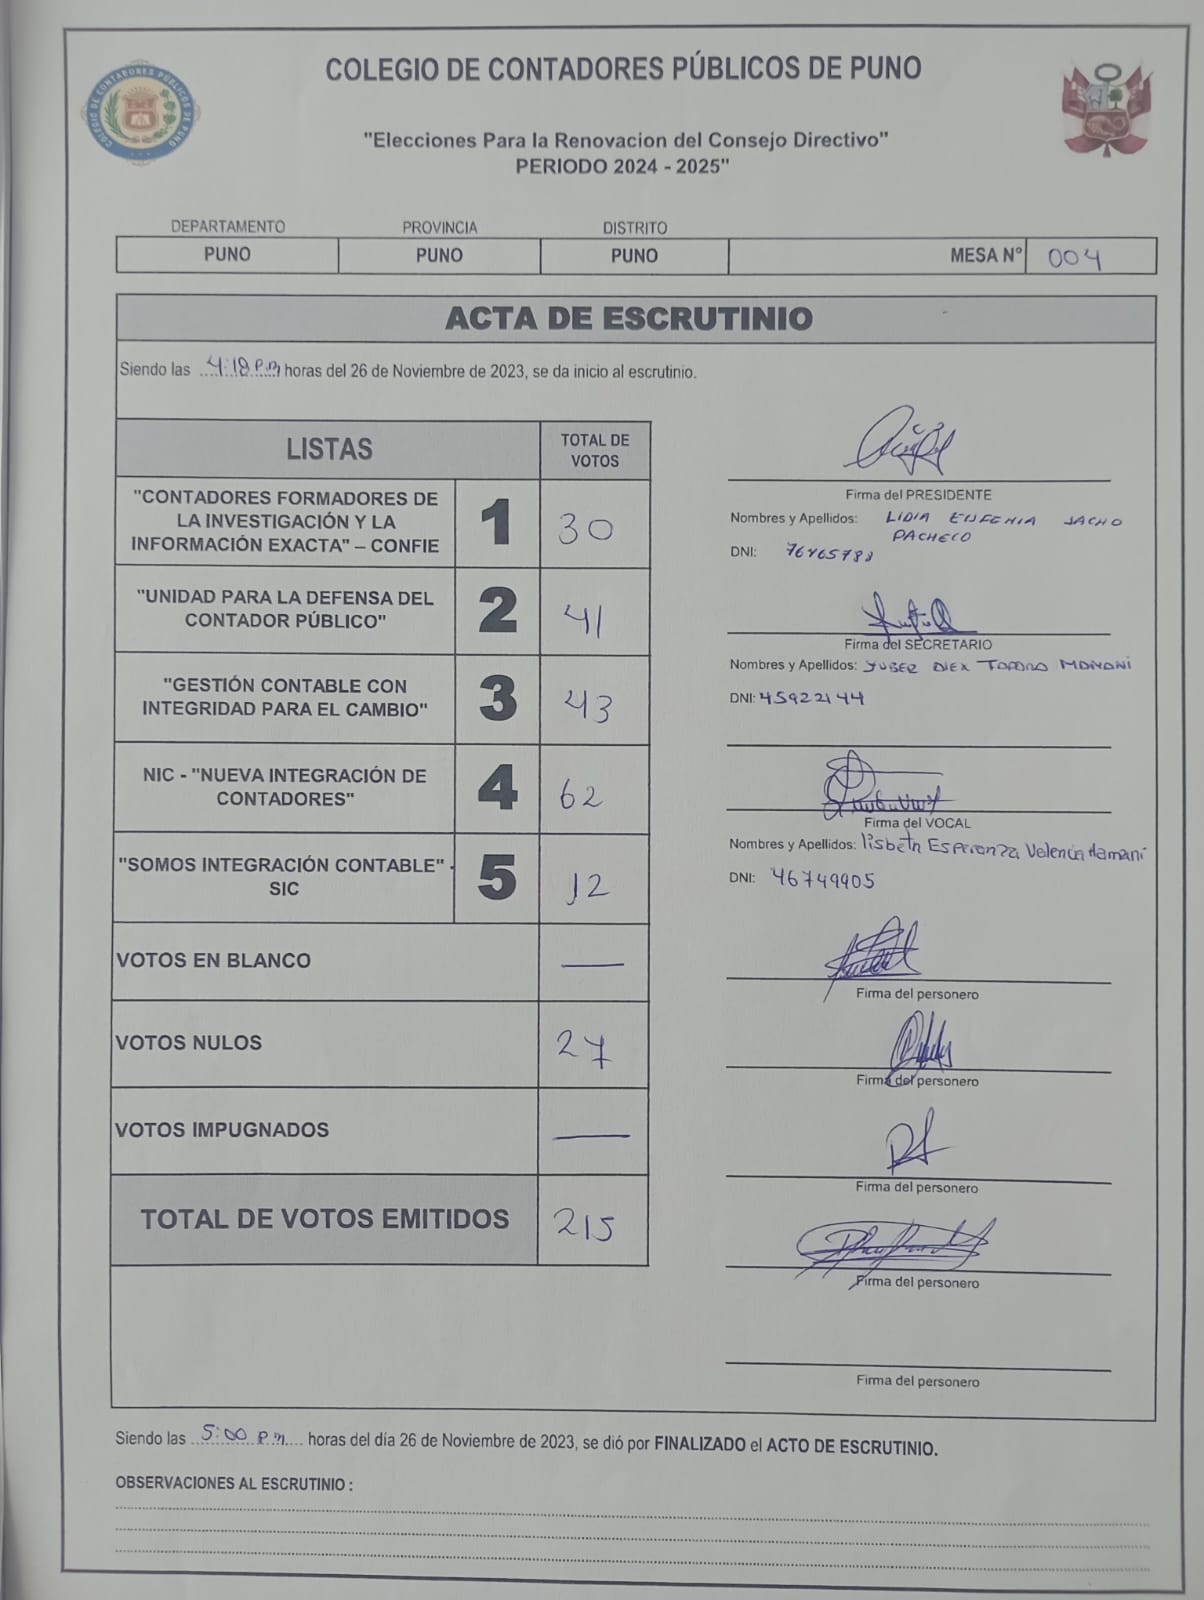 COLEGIO DE CONTADORES PÚBLICOS DE PUNO
"Elecciones Para la Renovacion del Consejo Directivo"
PERIODO 2024 - 2025"
DEPARTAMENTO PROVINCIA DISTRITO
PUNO PUNO PUNO MESA N° 004
ACTA DE ESCRUTINIO
Siendo las 4:18 P.m horas del 26 de Noviembre de 2023, se da inicio al escrutinio.
LISTAS TOTAL DE VOTOS
"CONTADORES FORMADORES DE
LA INVESTIGACIÓN Y LA
INFORMACIÓN EXACTA" – CONFIE
1 30
"UNIDAD PARA LA DEFENSA DEL
CONTADOR PÚBLICO"
2 41
"GESTIÓN CONTABLE CON
INTEGRIDAD PARA EL CAMBIO"
3 43
NIC - "NUEVA INTEGRACIÓN DE
CONTADORES"
4 62
"SOMOS INTEGRACIÓN CONTABLE" -
SIC
5 12
VOTOS EN BLANCO —
VOTOS NULOS 27
VOTOS IMPUGNADOS —
TOTAL DE VOTOS EMITIDOS 215
Firma del PRESIDENTE
Nombres y Apellidos: LIDIA EUFEMIA JACHO
PACHECO
DNI:
Firma del SECRETARIO
Nombres y Apellidos: YUBER DIEX MAMANI
DNI: 45922144
Firma del VOCAL
Nombres y Apellidos: lisbeth Esperanza Valencia Mamani
DNI: 46749905
Firma del personero
Firma del personero
Firma del personero
Firma del personero
Firma del personero
Siendo las 5:00 P.m. horas del día 26 de Noviembre de 2023, se dió por FINALIZADO el ACTO DE ESCRUTINIO.
OBSERVACIONES AL ESCRUTINIO :